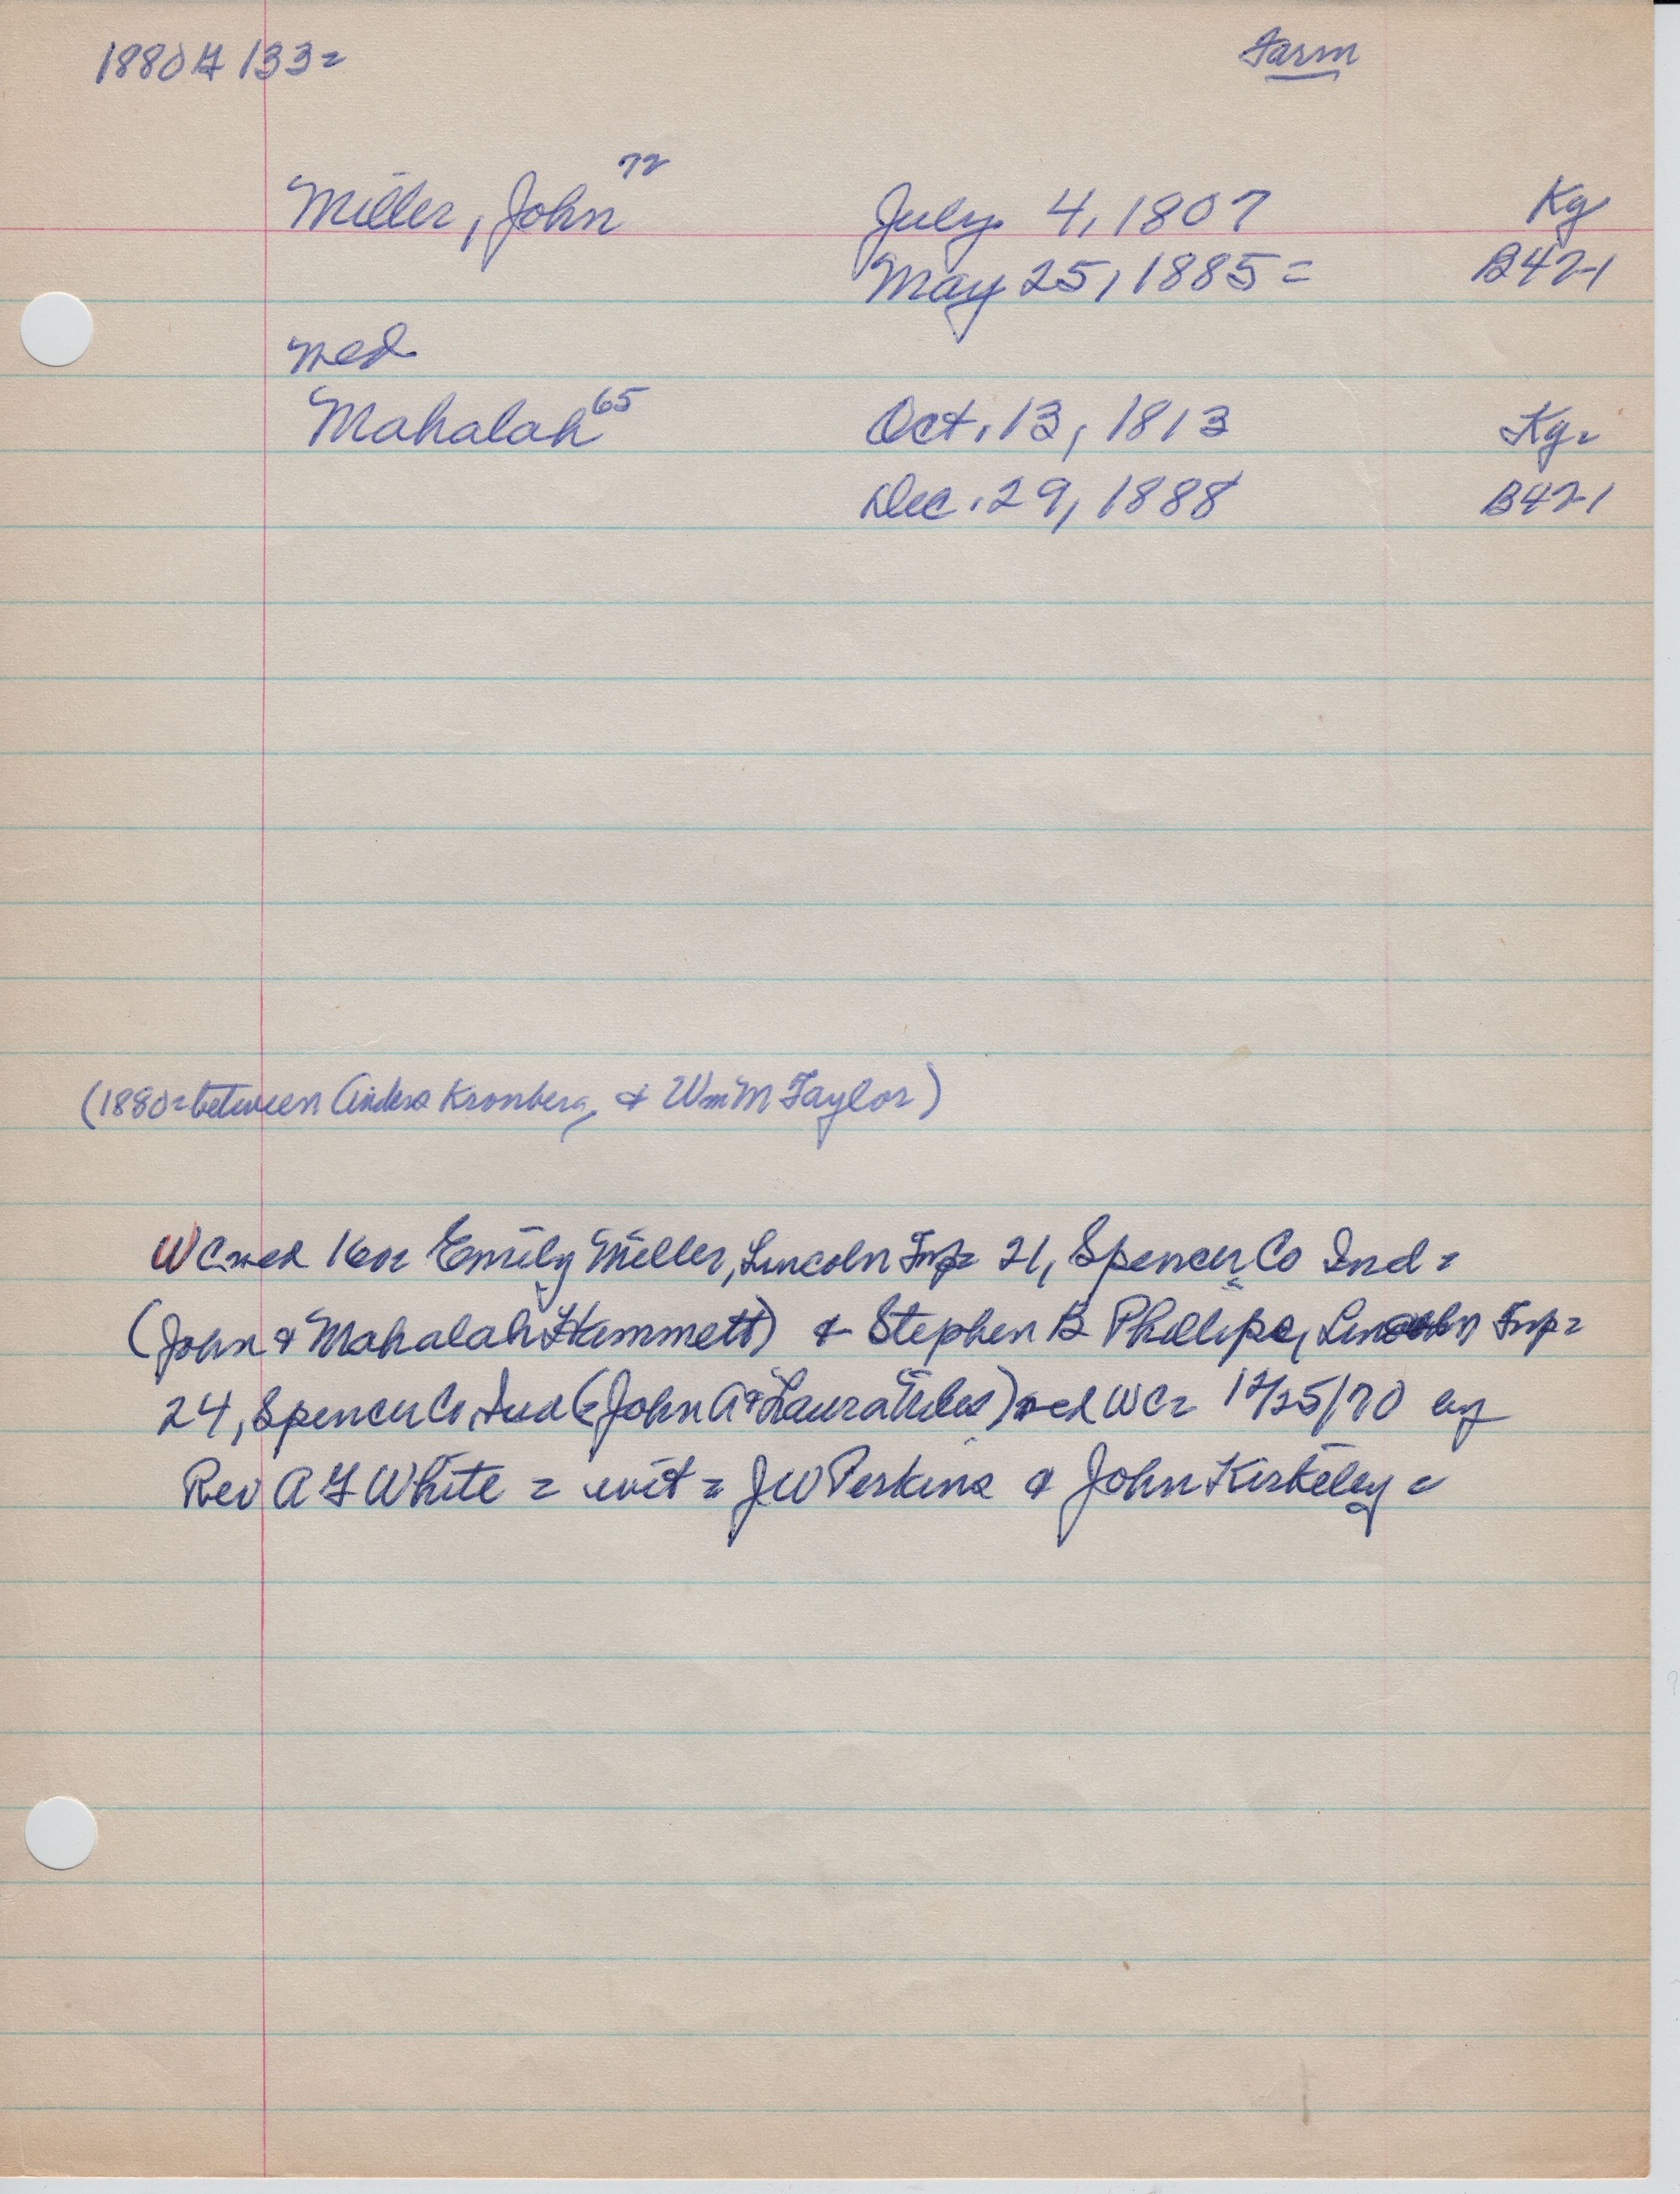 1880 # 133= Farm
Miller, John 72 July 4, 1807 Ky
May 25, 1885= B42-1
med
Mahalah 65 Oct. 13, 1813 Ky=
Dec. 29, 1888 B42-1
(1880=between Anders Kronberg & Wm M Taylor)
WC med 160= Emily Miller, Lincoln Twp= 21, Spencer Co Ind=
(John & Mahalah Hammett) & Stephen B Phillips, Lincoln Twp=
24, Spencer Co, Ind (=John A & Laura) med WC= 12/25/70 by
Rev A F White = wit= J W Perkins & John Kirkeley=